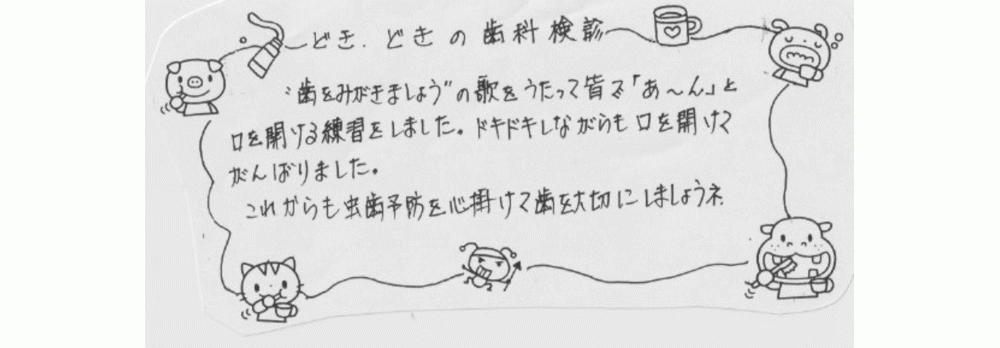 どき.どきの歯科検診
"歯をみがきましょう"の歌をうたって皆で「あ〜ん」と
口を開ける練習をしました。ドキドキしながらも口を開けて
がんばりました。
これからも虫歯予防を心掛けて歯を大切にしましょうネ